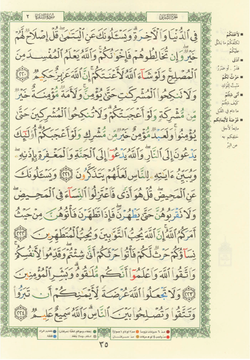 فِى ٱلدُّنْيَا وَٱلْـَٔاخِرَةِ وَيَسْـَٔلُونَكَ عَنِ ٱلْيَتَـٰمَىٰ قُلْ إِصْلَاحٌ لَّهُمْ
خَيْرٌ وَإِن تُخَالِطُوهُمْ فَإِخْوَٰنُكُمْ وَٱللَّهُ يَعْلَمُ ٱلْمُفْسِدَ مِنَ
ٱلْمُصْلِحِ وَلَوْ شَآءَ ٱللَّهُ لَأَعْنَتَكُمْ إِنَّ ٱللَّهَ عَزِيزٌ حَكِيمٌ
وَلَا تَنكِحُوا۟ ٱلْمُشْرِكَـٰتِ حَتَّىٰ يُؤْمِنَّ وَلَأَمَةٌ مُّؤْمِنَةٌ خَيْرٌ
مِّن مُّشْرِكَةٍ وَلَوْ أَعْجَبَتْكُمْ وَلَا تُنكِحُوا۟ ٱلْمُشْرِكِينَ حَتَّىٰ
يُؤْمِنُوا۟ وَلَعَبْدٌ مُّؤْمِنٌ خَيْرٌ مِّن مُّشْرِكٍ وَلَوْ أَعْجَبَكُمْ أُو۟لَـٰٓئِكَ
يَدْعُونَ إِلَى ٱلنَّارِ وَٱللَّهُ يَدْعُوٓا۟ إِلَى ٱلْجَنَّةِ وَٱلْمَغْفِرَةِ بِإِذْنِهِۦ
وَيُبَيِّنُ ءَايَـٰتِهِۦ لِلنَّاسِ لَعَلَّهُمْ يَتَذَكَّرُونَ ٢٢١ وَيَسْـَٔلُونَكَ
عَنِ ٱلْمَحِيضِ قُلْ هُوَ أَذًى فَٱعْتَزِلُوا۟ ٱلنِّسَآءَ فِى ٱلْمَحِيضِ
وَلَا تَقْرَبُوهُنَّ حَتَّىٰ يَطْهُرْنَ فَإِذَا تَطَهَّرْنَ فَأْتُوهُنَّ مِنْ حَيْثُ
أَمَرَكُمُ ٱللَّهُ إِنَّ ٱللَّهَ يُحِبُّ ٱلتَّوَّٰبِينَ وَيُحِبُّ ٱلْمُتَطَهِّرِينَ ٢٢٢
نِسَآؤُكُمْ حَرْثٌ لَّكُمْ فَأْتُوا۟ حَرْثَكُمْ أَنَّىٰ شِئْتُمْ وَقَدِّمُوا۟ لِأَنفُسِكُمْ
وَٱتَّقُوا۟ ٱللَّهَ وَٱعْلَمُوٓا۟ أَنَّكُم مُّلَـٰقُوهُ وَبَشِّرِ ٱلْمُؤْمِنِينَ
٢٢٣ وَلَا تَجْعَلُوا۟ ٱللَّهَ عُرْضَةً لِّأَيْمَـٰنِكُمْ أَن تَبَرُّوا۟
وَتَتَّقُوا۟ وَتُصْلِحُوا۟ بَيْنَ ٱلنَّاسِ وَٱللَّهُ سَمِيعٌ عَلِيمٌ ٢٢٤
٣٥